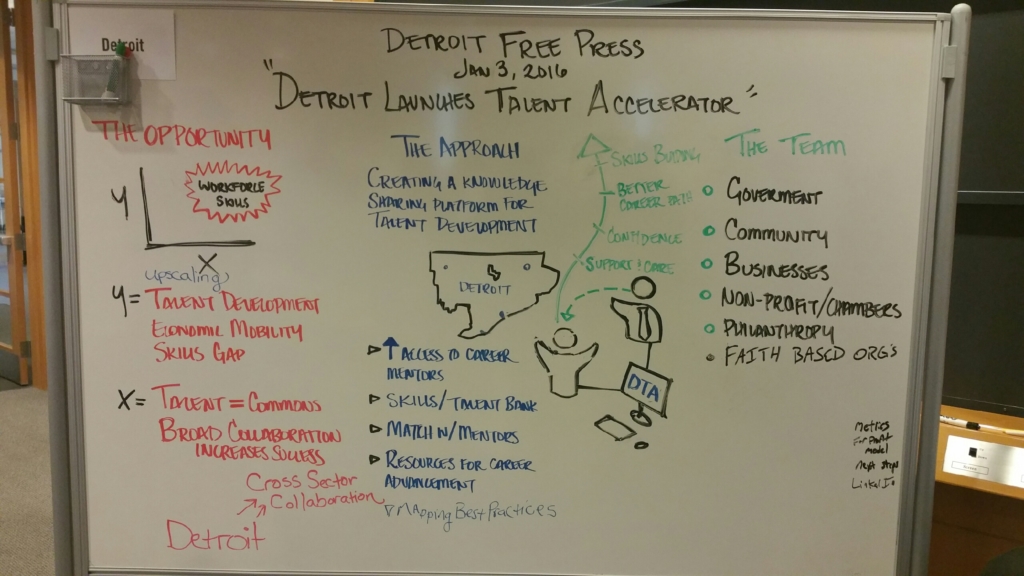 Detroit
DETROIT FREE PRESS
JAN 3, 2016
"DETROIT LAUNCHES TALENT ACCELERATOR"
THE OPPORTUNITY
Y
WORKFORCE
SKILLS
X
upscaling
Y = TALENT DEVELOPMENT
ECONOMIC MOBILITY
SKILLS GAP
X = TALENT = COMMONS
BROAD COLLABORATION
INCREASES SUCCESS
Cross Sector
Collaboration
Detroit
THE APPROACH
CREATING A KNOWLEDGE
SHARING PLATFORM FOR
TALENT DEVELOPMENT
DETROIT
▷ ↑ ACCESS TO CAREER
MENTORS
▷ SKILLS/TALENT BANK
▷ MATCH W/MENTORS
▷ RESOURCES FOR CAREER
ADVANCEMENT
▽ MAPPING BEST PRACTICES
SKILLS BUDING
BETTER
CAREER PATH
CONFIDENCE
SUPPORT & CARE
DTA
THE TEAM
GOVERMENT
COMMUNITY
BUSINESSES
NON-PROFIT/CHAMBERS
PHILANTHROPY
FAITH BASED ORG'S
Metrics
For Profit
model
Next Steps